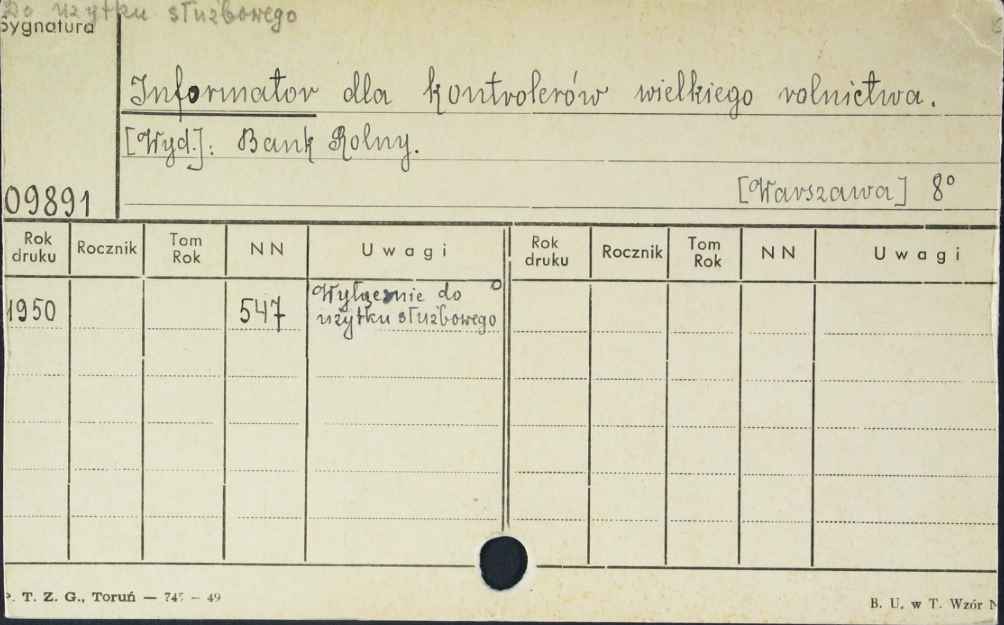 Do użytku służbowego
Sygnatura
Informator dla kontrolerów wielkiego rolnictwa.
[Wyd.]: Bank Rolny.
[Warszawa] 8°
09891
Rok druku Rocznik Tom Rok NN Uwagi Rok druku Rocznik Tom Rok NN Uwagi
1950 547 Wyłącznie do
użytku służbowego
T. Z. G., Toruń — 74 – 49
B. U. w T. Wzór